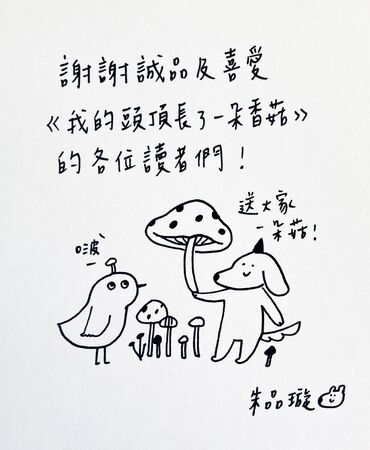 謝謝誠品及喜愛
《我的頭頂長了一朵香菇》
的各位讀者們！
送大家
一朵菇！
啵
朱品璇